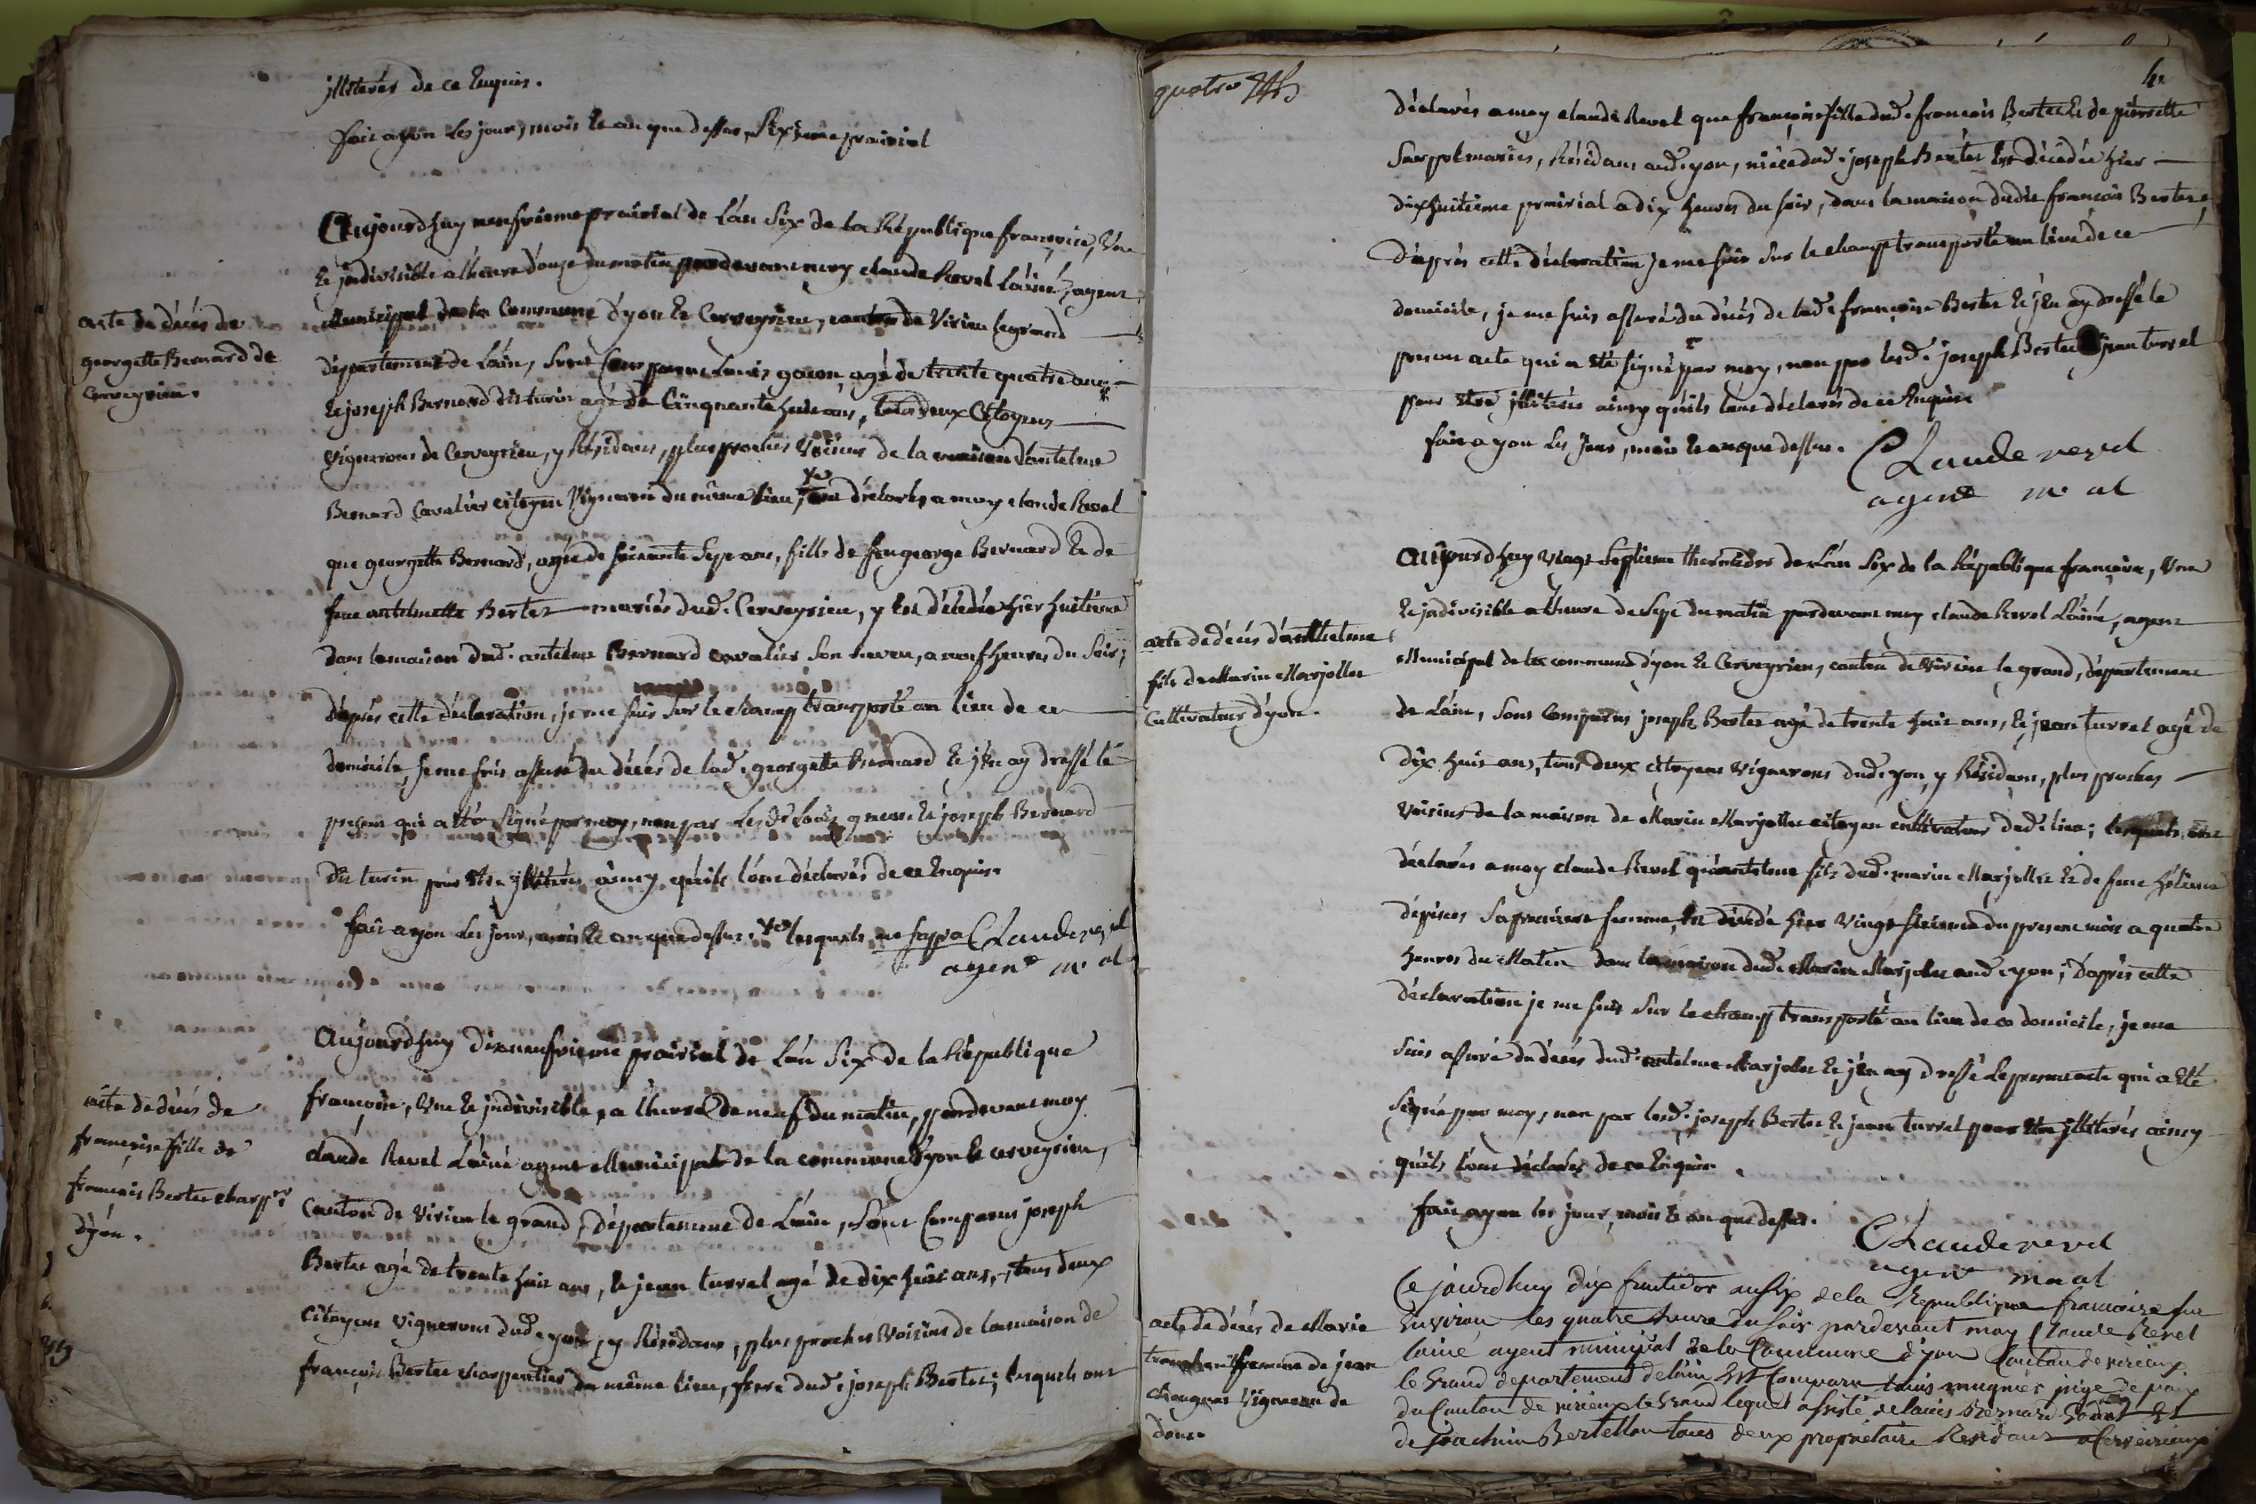 jlliterés de ce Enquis.
fait a yon les jour, mois Et an que dessus, sixieme prairial
Aujourdhuy neufvieme prairial de L'an Six de la République françoise, Une
Et jndivisible a l'heure d'onze du matin pardevant moy claude Revel L'ainé, agent
Municipal de la Commune d'yon Et Cerveyrieu, canton de Virieu le grand
acte de décés de
georgette Bernard de
Cerveyrieu.
département de L'ain, sont Comparus Louis agé de trente quatre ans
Et joseph Bernard dit turin agé de Cinquante huit ans, tous deux Citoyens
Vignerons de Cerveyrieu, y Résidans, plus proches Voisins de la maison d'antelme
Bernard Cavalier citoyen Vigneron du même lieu, ont déclarés a moy claude Revel
que georgette Bernard, agée de soixante Sept ans, fille de feu george Bernard Et de
feue antelmette Berter mariés dud. Cerveyrieu, y Est décédée hier huitieme
dans la maison dud. antelme Bernard cavalier son neveu, a neuf heures du Soir;
d'après cette déclaration, je me suis sur le champ transporté au lieu de ce
domicile, je me suis assuré du décés de lad. georgette Bernard Et j'En ay dressé le
présent qui a Eté signé par moy, non par lesd. Louis Et joseph Bernard
dit turin pour Etre jlliterés ainsy qu'ils l'ont déclarés de ce Enquis.
fait a yon les jour, mois Et an que dessus. lesquels Claude revel
agent m al
Aujourdhuy dixneufvieme prairial de L'an Six de la République
françoise, Une Et jndivisible, a l'heure de neuf du matin, pardevant moy
acte de décés de
françoise fille de
françois Berter charpr
d'yon.
claude Revel L'ainé agent Municipal de la commune d'yon Et cerveyrieu,
Canton de Virieu le grand, département de L'ain, sont Comparus joseph
Berter agé de trente huit ans, Et jean turrel agé de dix huit ans, tous deux
Citoyens vignerons dud. yon, y Résidans, plus proches Voisins de la maison de
françois Berter charpentier du même lieu, frere dud. joseph Berter; lesquels ont
quatre
4
déclarés a moy claude Revel que françoise fille dud. françois Berter Et de pierrette
mariés, Résidans aud. yon, niéce dud. joseph Berter Est décédée hier
dixhuitieme prairial a dix heures du soir, dans la maison dudit françois Berter,
d'après cette déclaration je me suis sur le champ transporté au lieu de ce
domicile, je me suis assuré du décés de lad. françoise Berter Et j'En ay dressé le
present acte qui a Eté signé par moy, non par lesd. joseph Berter jean turrel
pour Etre jlliterés ainsy qu'ils l'ont déclarés de ce Enquis
fait a yon les jour, mois Et an que dessus.
Claude revel
agent m al
Aujourdhuy vingt Septieme thermidor de L'an Six de la République françoise, Une
Et jndivisible a l'heure de sept du matin pardevant moy claude Revel L'ainé, agent
acte de décés d'anthelme
fils de Marin Marjollet
Cultivateur d'yon.
Municipal de la commune d'yon Et Cerveyrieu, canton de Virieu le grand, département
de L'ain, sont Comparus joseph Berter agé de trente huit ans, Et jean turrel agé de
dix huit ans, tous deux citoyens vignerons dud. yon, y Résidans, plus proches
voisins de la maison de Marin Marjollet citoyen cultivateur dud. lieu; lesquels ont
déclarés a moy claude Revel qu'antelme fils dud. marin Marjollet Et de feue
sa premiere femme, Est décédé hier vingt sixieme du present mois a quatre
heures du Matin dans la maison dud. Marin Marjollet aud. yon; d'après cette
déclaration je me suis sur le champ transporté au lieu de ce domicile, je me
suis assuré du décés dud. antelme Marjollet Et j'En ay dressé le present acte qui a Eté
signé par moy, non par lesd. joseph Berter Et jean turrel pour Etre jlliterés ainsy
qu'ils l'ont déclarés de ce Enquis
fait a yon les jour, mois Et an que dessus.
Claude revel
agent m al
Ce jourdhuy dix fructidor an six de la Republique francoize sur
Environ les quatre heure du soir pardevant moy Claude Revel
acte de décés de Marie
femme de jean
Vigneron de
lainé agent municipal de la Commune d'yon Canton de virieux
le Grand departement de lain Est Comparu Louis mugnier juge de paix
du Canton de virieux le Grand lequel assisté de louis Bernard Et
de joachim Bertellon tous deux propriétaire Residant a Cerveirieux